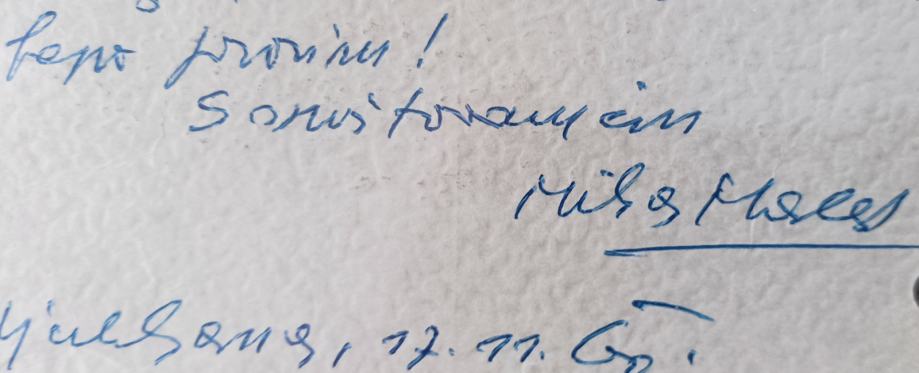 lepo prosim!
S omoštovanjem
Miha Maleš
Ljubljana, 17. 11. 65.